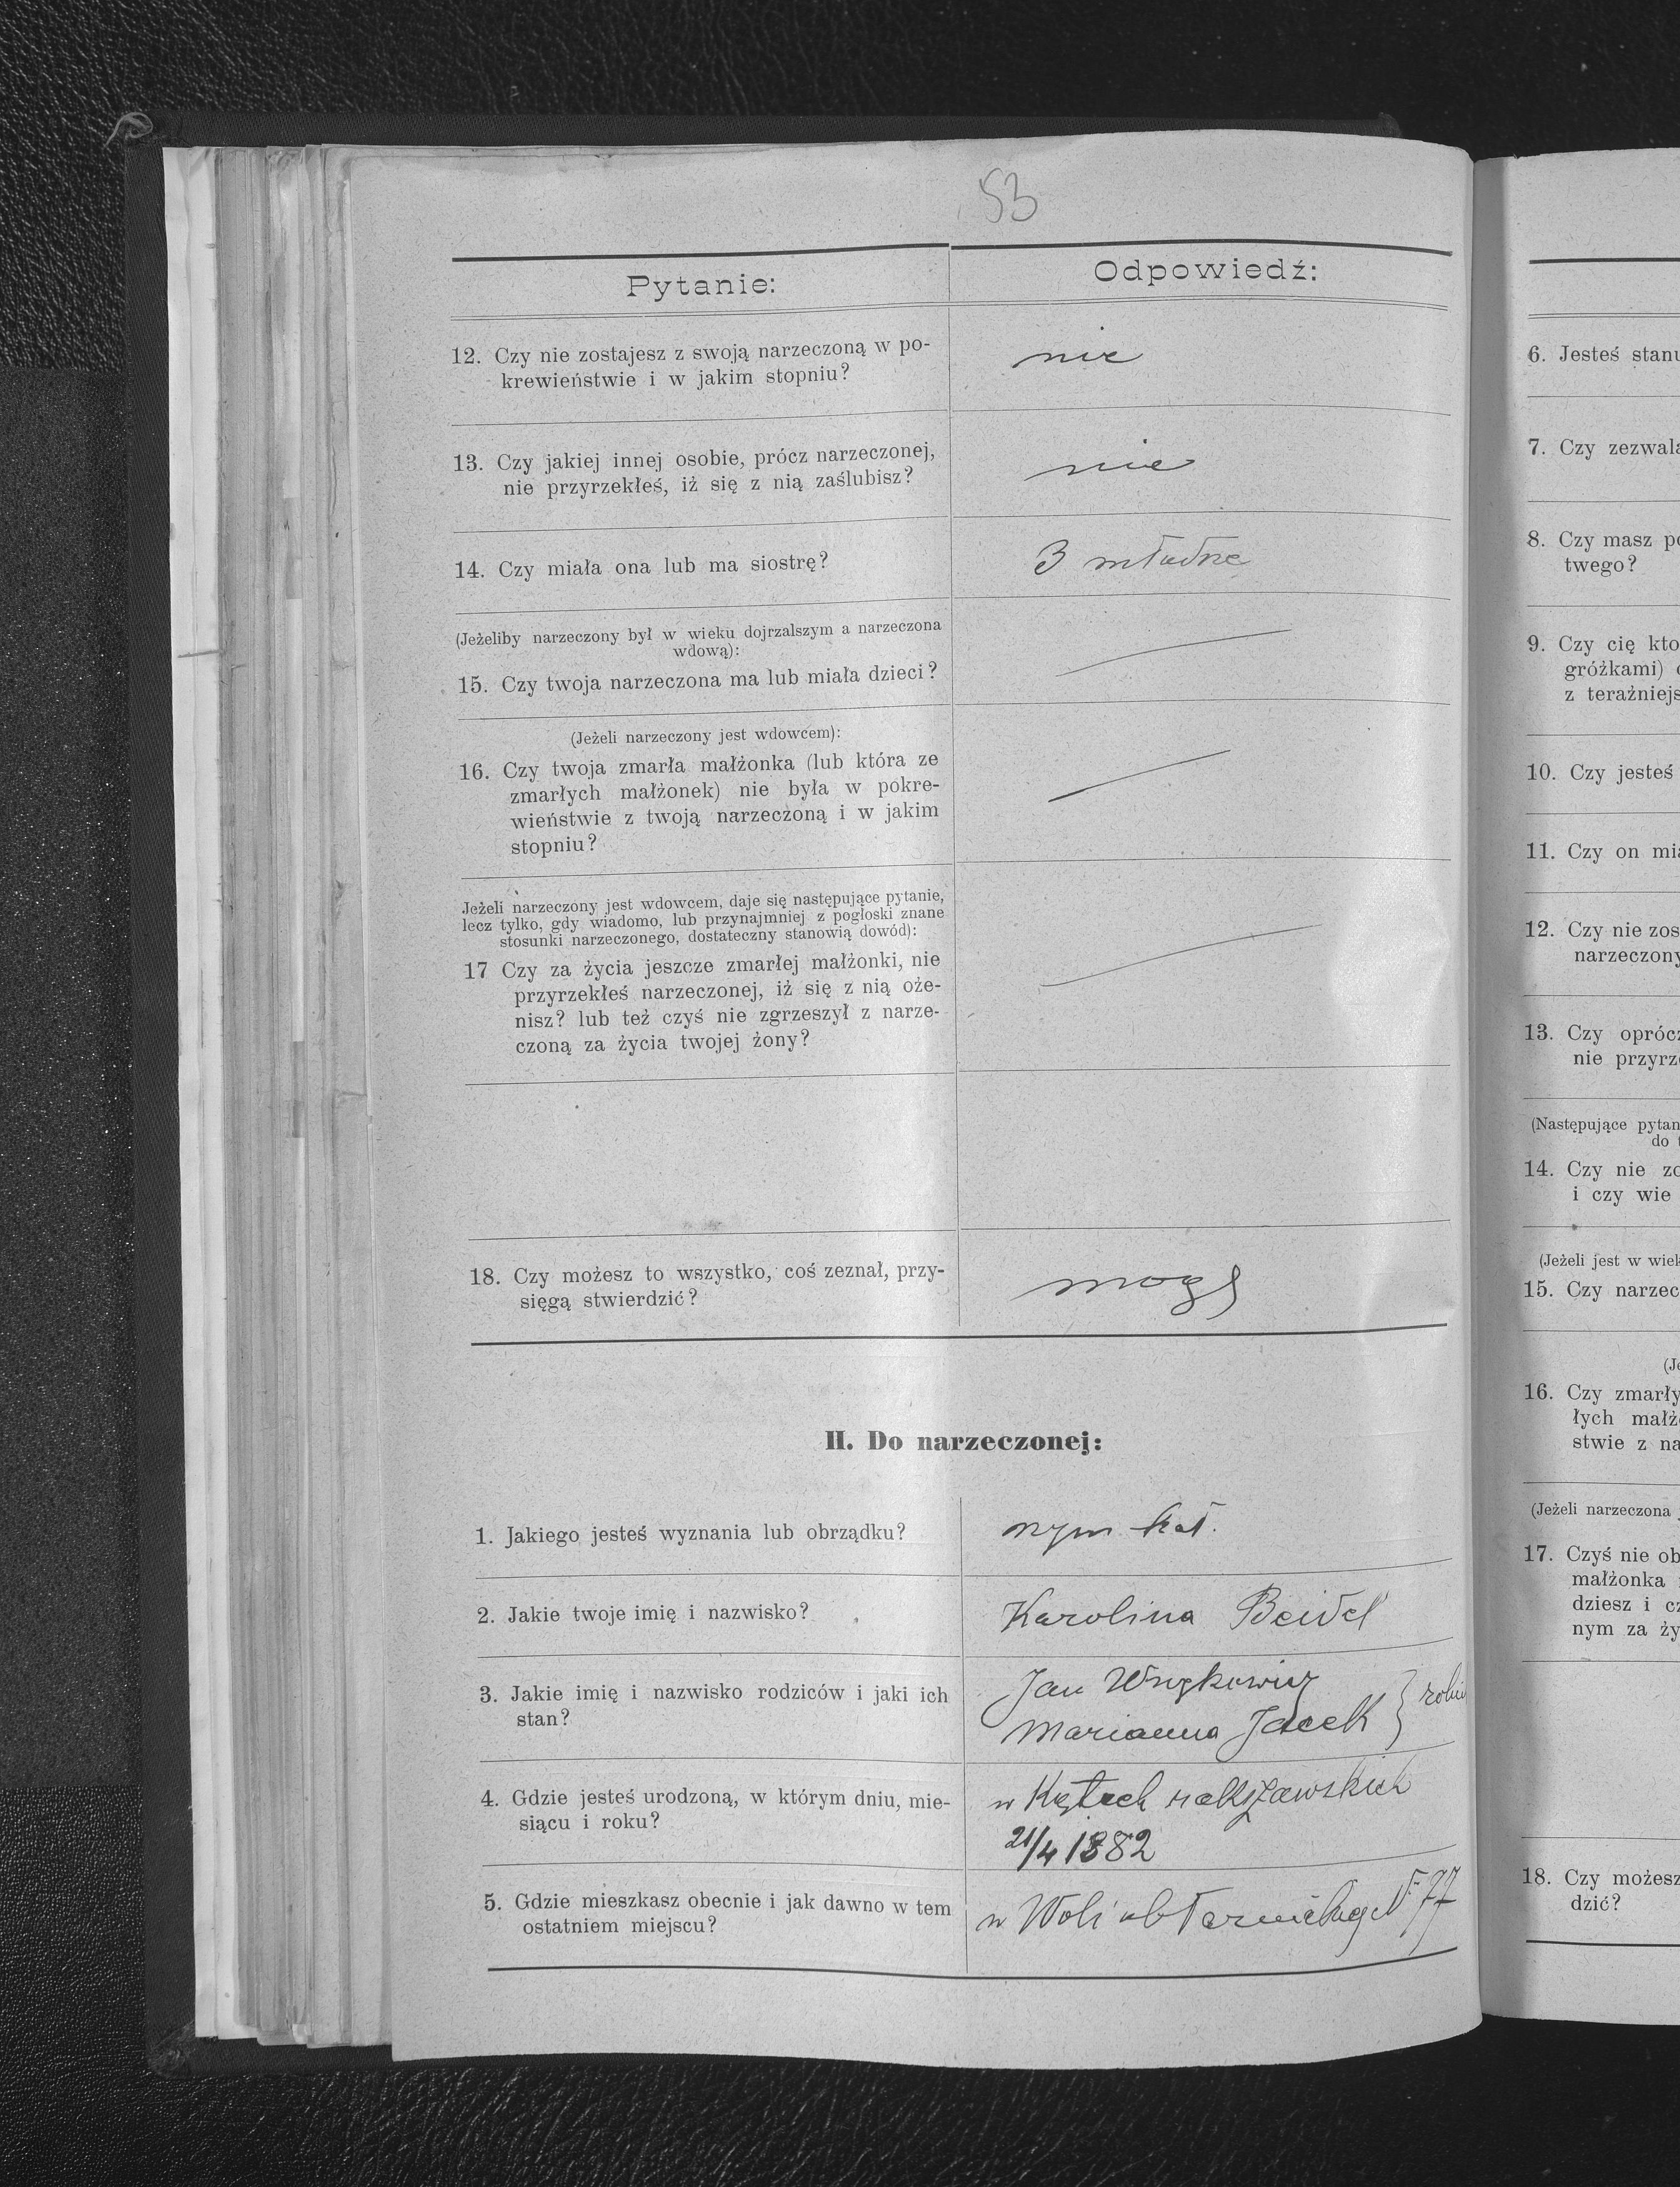 53
Pytanie:
Odpowiedź:
12. Czy nie zostajesz z swoją narzeczoną w po-
krewieństwie i w jakim stopniu?
nie
13. Czy jakiej innej osobie, prócz narzeczonej,
nie przyrzekłeś, iż się z nią zaślubisz?
nie
14. Czy miała ona lub ma siostrę?
3
(Jeżeliby narzeczony był w wieku dojrzalszym a narzeczona
wdową):
15. Czy twoja narzeczona ma lub miała dzieci?
(Jeżeli narzeczony jest wdowcem):
16. Czy twoja zmarła małżonka (lub która ze
zmarłych małżonek) nie była w pokre-
wieństwie z twoją narzeczoną i w jakim
stopniu?
Jeżeli narzeczony jest wdowcem, daje się następujące pytanie,
lecz tylko, gdy wiadomo, lub przynajmniej z pogłoski znane
stosunki narzeczonego, dostateczny stanowią dowód):
17 Czy za życia jeszcze zmarłej małżonki, nie
przyrzekłeś narzeczonej, iż się z nią oże-
nisz? lub też czyś nie zgrzeszył z narze-
czoną za życia twojej żony?
18. Czy możesz to wszystko, coś zeznał, przy-
sięgą stwierdzić?
mogę
II. Do narzeczonej:
1. Jakiego jesteś wyznania lub obrządku?
rzym kat.
2. Jakie twoje imię i nazwisko?
Karolina Beidel
3. Jakie imię i nazwisko rodziców i jaki ich
stan?
Jan
Marianna Jacek
4. Gdzie jesteś urodzoną, w którym dniu, mie-
siącu i roku?
w Kątach rakszawskich
21/4 1882
5. Gdzie mieszkasz obecnie i jak dawno w tem
ostatniem miejscu?
w Woli N: 77
6. Jesteś stanu
7. Czy zezwala
8. Czy masz po
twego?
9. Czy cię kto
gróżkami)
z teraźniejs
10. Czy jesteś
11. Czy on mia
12. Czy nie zos
narzeczony
13. Czy oprócz
nie przyrze
(Następujące pytan
do
14. Czy nie zo
i czy wie
(Jeżeli jest w wiek
15. Czy narzec
(Je
16. Czy zmarły
łych małżo
stwie z na
(Jeżeli narzeczona
17. Czyś nie ob
małżonka
dziesz i cz
nym za ży
18. Czy możesz
dzić?